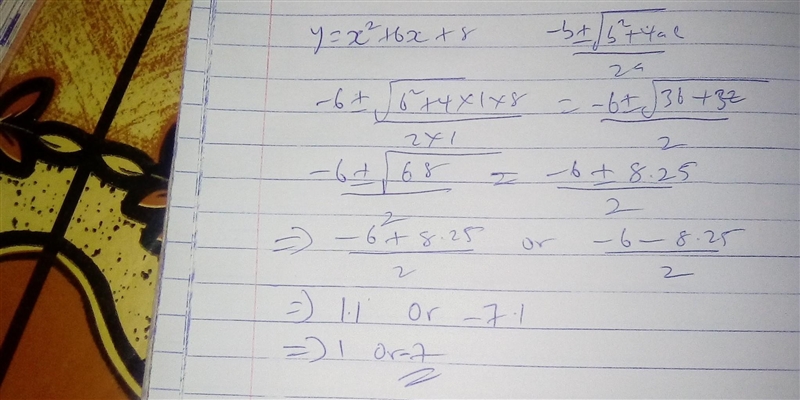 y = x² + 6x + 8    -b ± √(b² + 4ac) / 2a
-6 ± √(6² + 4 × 1 × 8) / 2 × 1 = -6 ± √(36 + 32) / 2
-6 ± √68 / 2 = -6 ± 8.25 / 2
⇒ -6 + 8.25 / 2 or -6 - 8.25 / 2
⇒ 1.1 Or -7.1
⇒ 1 Or -7